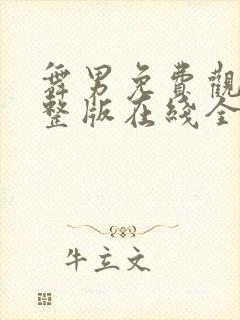 舞男免費觀
整版在綫全
牛立文